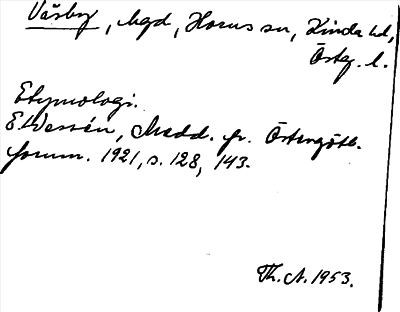 Väsby, hgd, Horns sn, Kinda hd,
Östg. l.
Etymologi.
E. Wessén, Medd. fr. Östergötl.
fornm. 1921, s. 128, 143.
Th. A. 1953.